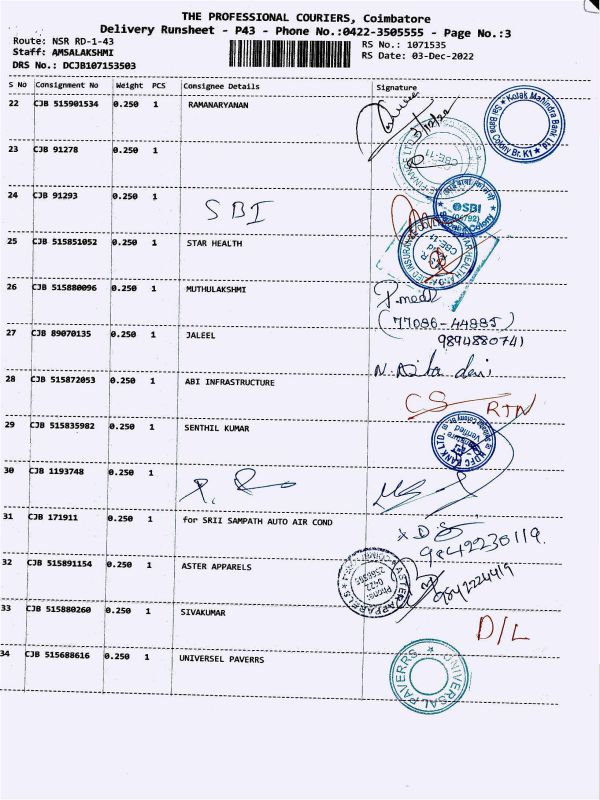 THE PROFESSIONAL COURIERS, Coimbatore
Delivery Runsheet - P43 - Phone No.:0422-3505555 - Page No.:3
Route: NSR RD-1-43
RS No.: 1071535
Staff: AMSALAKSHMI
RS Date: 03-Dec-2022
DRS No.: DCJB107153503
S No Consignment No Weight PCS Consignee Details Signature
22 CJB 515901534 0.250 1 RAMANARYANAN
Kotak Mahindra Bank Ltd
Sai Baba Colony Br.
23 CJB 91278 0.250 1
CBE-11
24 CJB 91293 0.250 1 SBI
SBI
25 CJB 515851052 0.250 1 STAR HEALTH
CBE-11
26 CJB 515880096 0.250 1 MUTHULAKSHMI
(77086-44885)
9894880741
27 CJB 89070135 0.250 1 JALEEL
28 CJB 515872053 0.250 1 ABI INFRASTRUCTURE
CS RTN
29 CJB 515835982 0.250 1 SENTHIL KUMAR
HDFC BANK LTD.
30 CJB 1193748 0.250 1
31 CJB 171911 0.250 1 for SRII SAMPATH AUTO AIR COND
9842230119.
32 CJB 515891154 0.250 1 ASTER APPARELS
ASTER APPARELS
Phone:
0422
9842224419
33 CJB 515880260 0.250 1 SIVAKUMAR
D/L
34 CJB 515688616 0.250 1 UNIVERSEL PAVERRS
UNIVERSAL PAVERRS